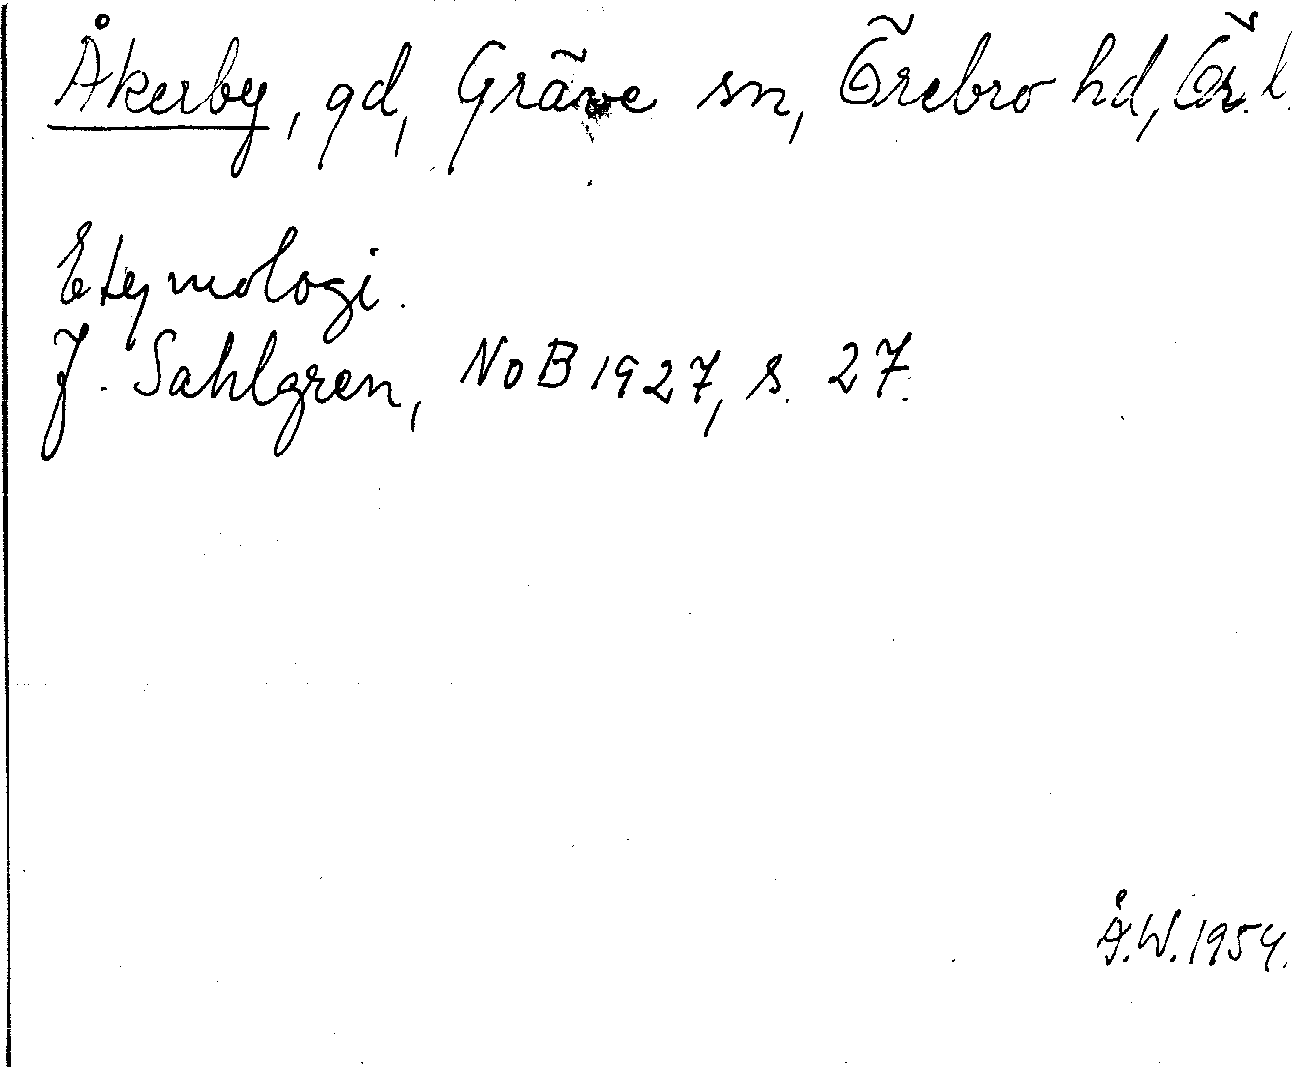 Åkerby, gd, Gräve sn, Örebro hd, Ör. l.
Etymologi.
J. Sahlgren, NoB 1927, s. 27.
Å.W. 1954.